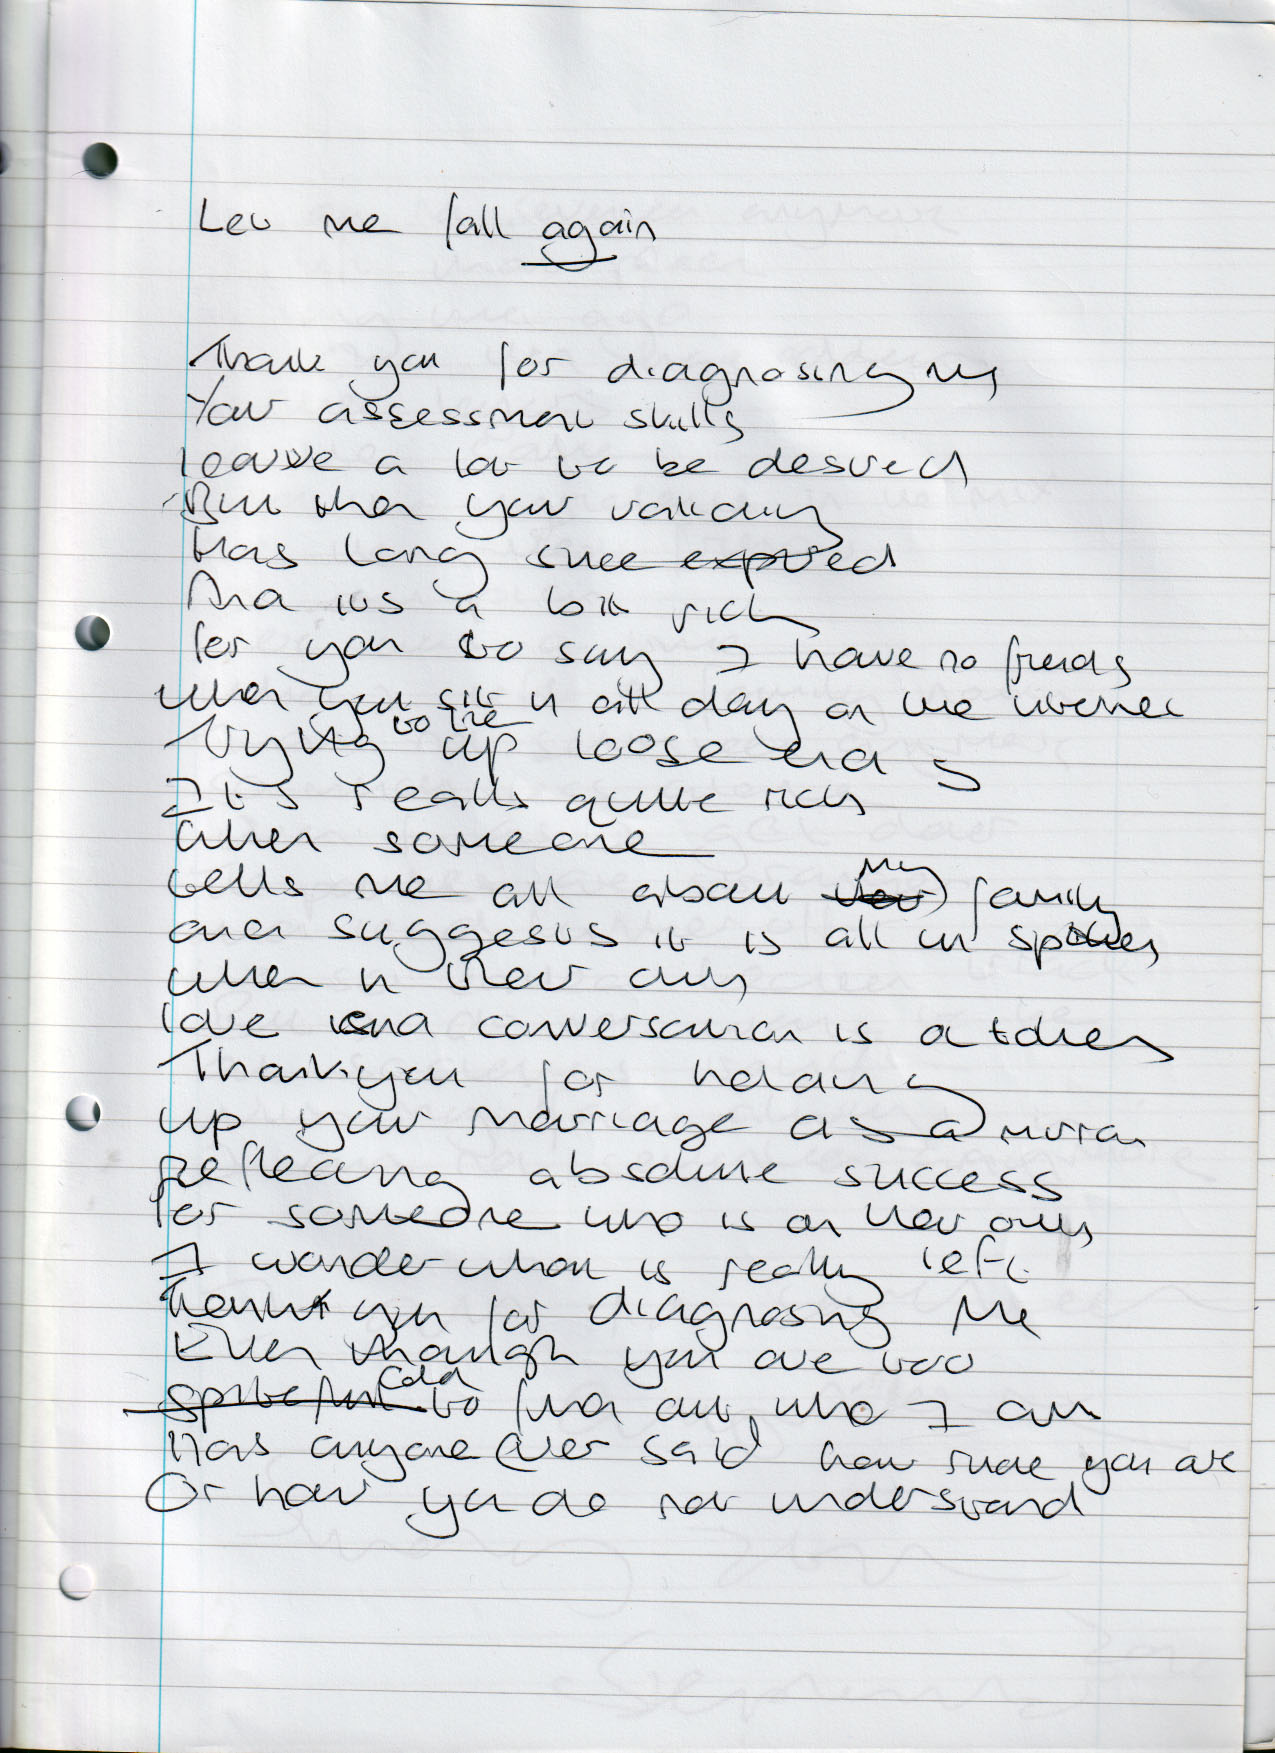 Let me fall again
Thank you for diagnosing my
Your assessment skills
leave a lot to be desired
But then your validity
Has long since expired
And its a bit rich
for you to say I have no friends
when you sit in all day on the internet
Trying to tie up loose ends
Its really quite rich
When someone
tells me all about my family
and suggests it is all in
when in their
love and conversation is
Thankyou for holding
up your marriage as a
reflecting absolute success
for someone who is on her own
I wonder what is really left
Thank you for diagnosing me
Even though you are too
spiteful cold to find out who I am
Has anyone ever said how rude you are
Or how you do not understand